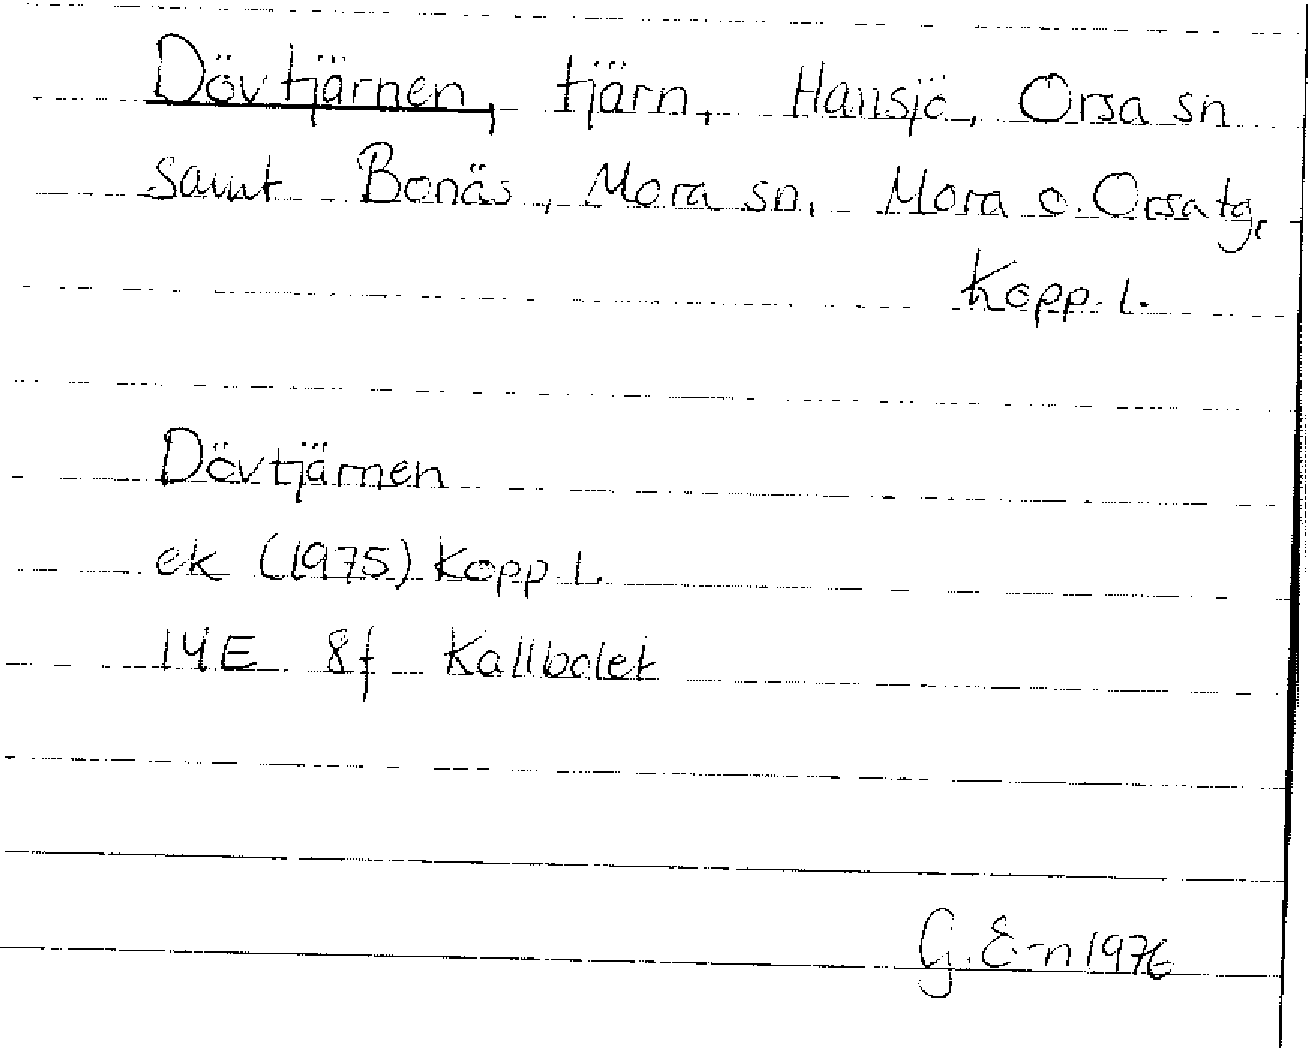 Dövtjärnen, tjärn, Hansjö, Orsa sn
samt Bonäs, Mora sn, Mora o. Orsa tg,
Kopp. l.
Dövtjärnen
ek (1975) Kopp. l.
14E 8f Kallbolet
G. E-n 1976